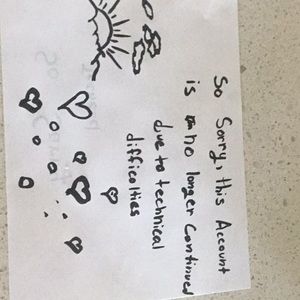 So Sorry, this Account
is no longer continued
due to technical
difficalties